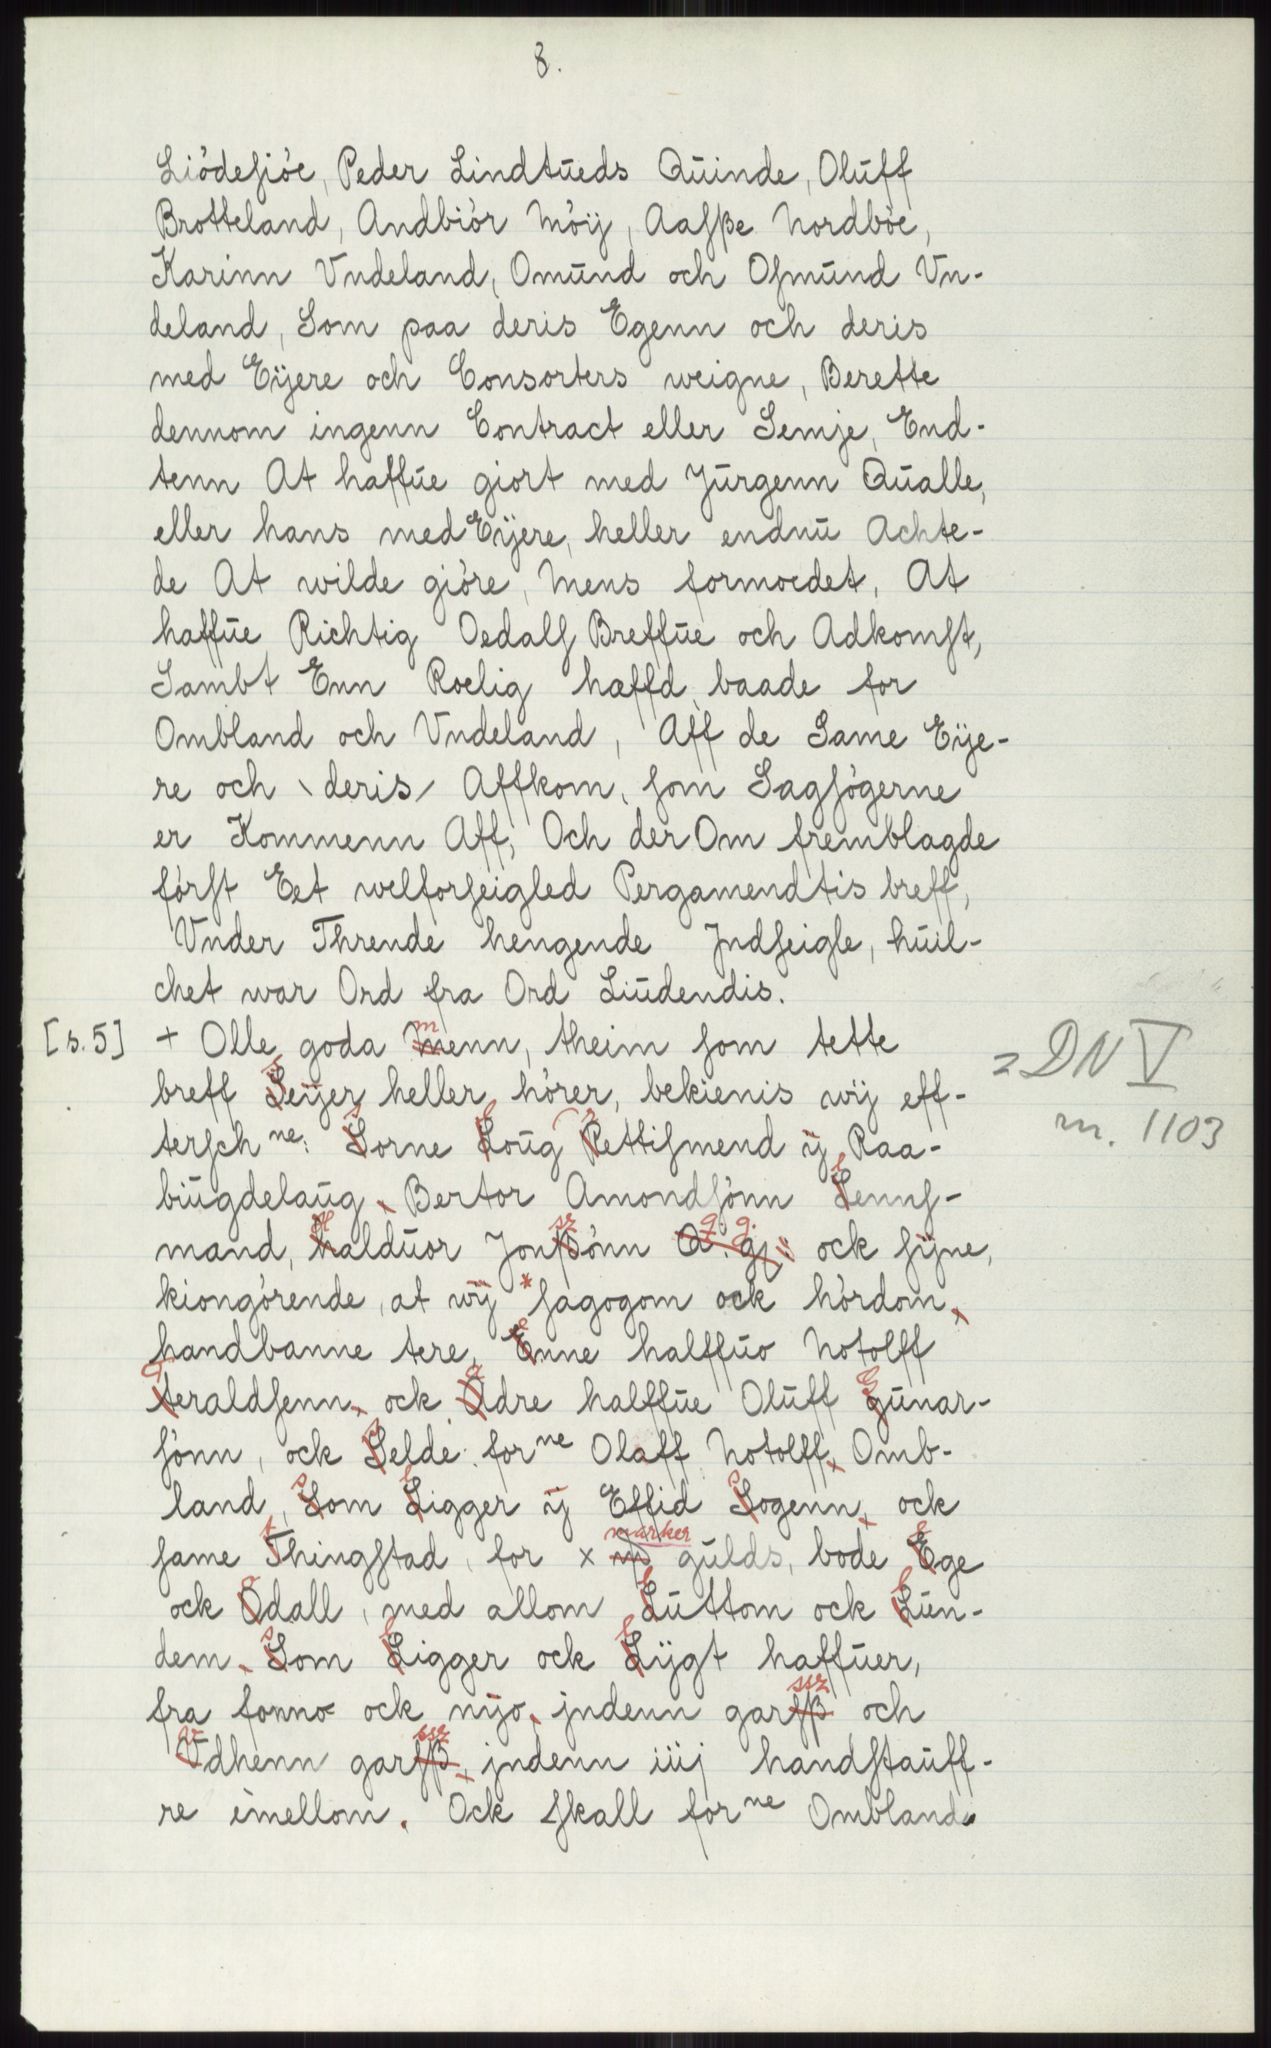 8.
Liödesiöe, Peder Lindtueds Quinde, Oluff
Brotteland, Andbiör Möij, Aasße Nordböe,
Karinn Vndeland, Omund och Osmund Vn-
deland, Som paa deris Egenn och deris
med Eijere och Consorters weigne, Berette
dennom ingenn Contract eller Semje, End-
tenn At haffue giort med Jürgenn Qualle,
eller hans med Eijere, heller endnu Achte-
de At wilde giöre, Mens formoedet, At
haffue Richtig Oedals Breffue och Adkomst,
Sambt Enn Roelig hæffd, baade for
Ombland och Vndeland, Aff de Same Eije-
re och \ deris / Affkom, som Sagsögerne
er Kommenn Aff, Och der Om fremblagde
först Eet welforseigled Pergamendtis breff,
Vnder Thrende hengende Jndseigle, huil-
chet war Ord fra Ord Liudendis.
[s. 5] + Olle goda menn, theim som tette
= DN V
breff seijer heller hörer, bekienis wij eff-
n. 1103
tersch ne: sorne loug rettismend ij Raa-
biugdelaug Bertor Amondsönn lenns-
mand, Halduor Jonszönn q. g. ock sijne,
kiongörende, at wij * sagogom ock hördom
handbanne tere, enne halffuo Notolff
Teraldsenn ock adre halffue Oluff Gunar-
sönn, ock selde for ne Olaff Notolff Omb-
land, som ligger ij Effid sogenn ock
same thingstad, for x marker gulds, bode ege
ock odall, med allom luttom ock lun-
dem som ligger ock lijgt haffuer,
fra fonno ock nijo jndenn garssz och
vdhenn garssz jndenn iiij handstauff-
re imellom. Ock skall for ne Ombland